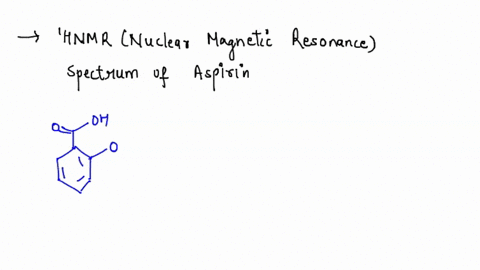 → ¹HNMR (Nuclear Magnetic Resonance)
Spectrum of Aspirin
O OH
O